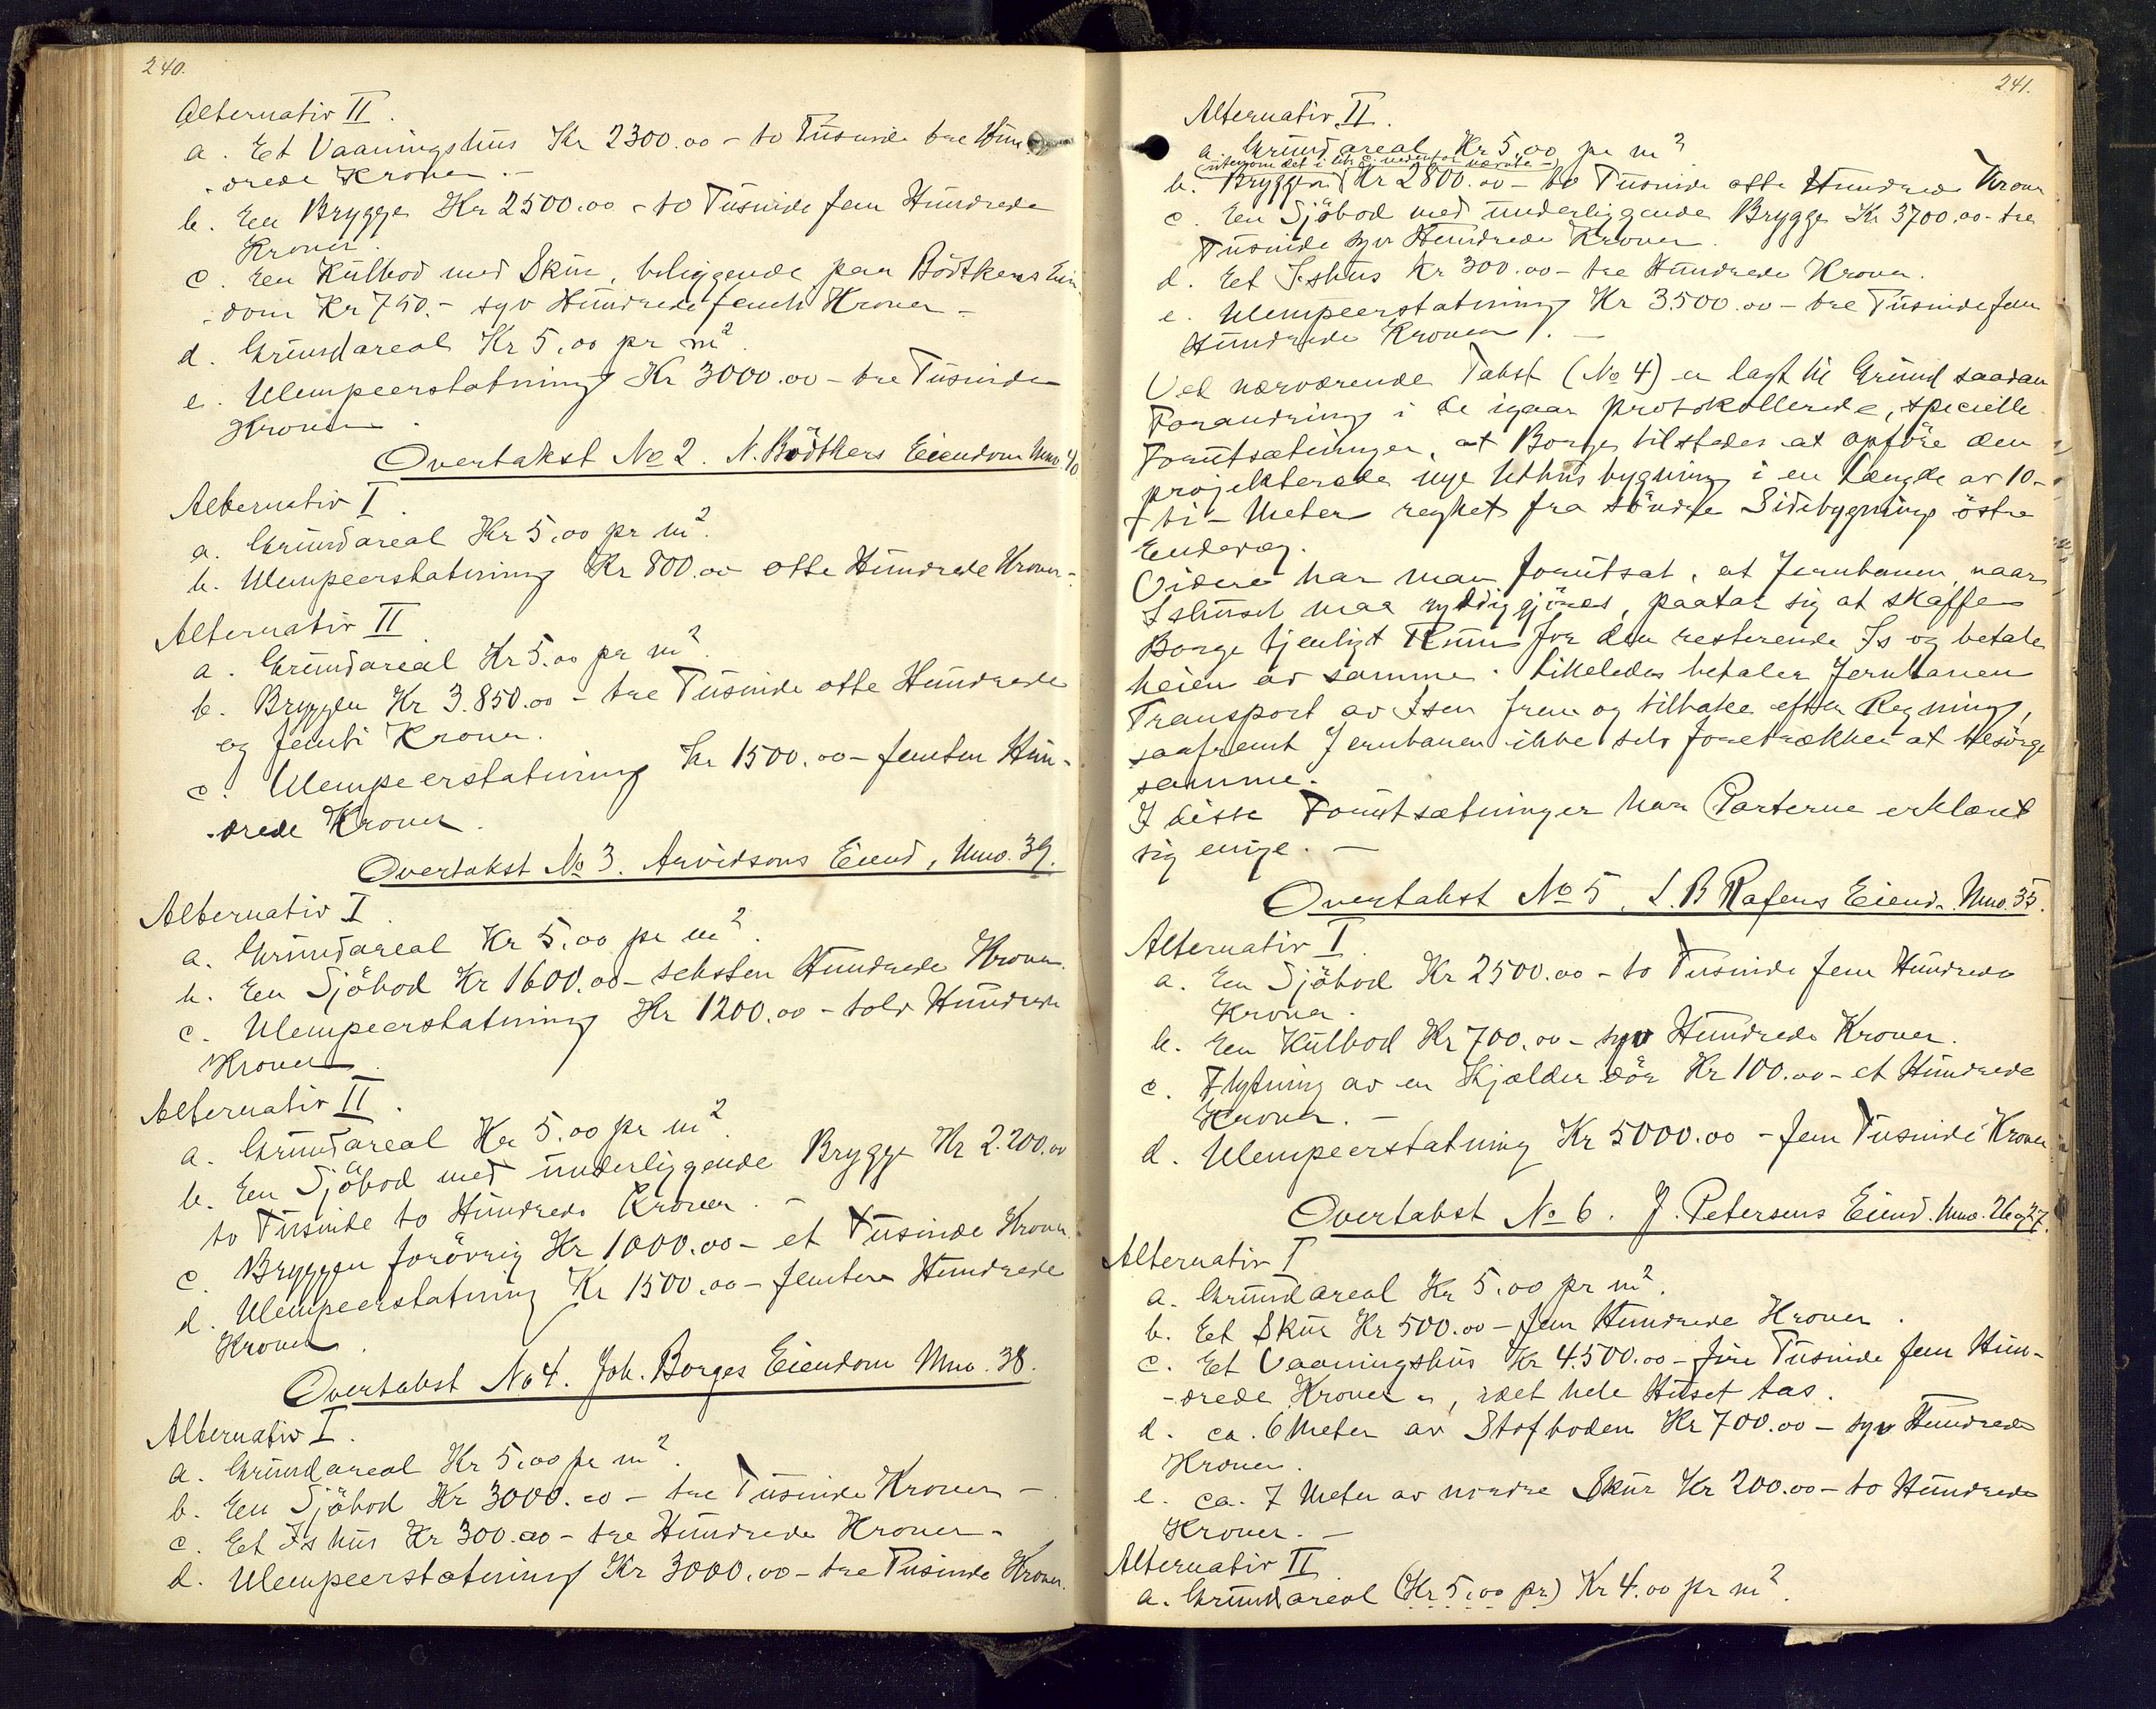 240.
Alternativ II.
a. Et Vaaningshus Kr 2300.00 - to Tusinde tre Hun
-drede Kroner.-
b. En Brygge Kr 2500.00 - to Tusinde fem Hundrede
Kroner.
c. En Kulbod med Skur, beliggende paa Bödtkers Eien
-dom Kr 750.- syv Hundrede femti Kroner -
d. Grundareal Kr 5,00 pr m².
e. Ulempeerstatning Kr 3000.00 - tre Tusinde
Kroner.
Overtakst No 2. N. Bödtkers Eiendom Mno. 40
Alternativ I.
a. Grundareal Kr 5,00 pr m².
b. Ulempeerstatning Kr 800.00 otte Hundrede Kroner-
Alternativ II.
a. Grundareal Kr 5.00 pr m².
b. Bryggen Kr 3.850.00 - tre Tusinde otte Hundrede
og femti Kroner.
c. Ulempeerstatning Kr 1500.00 - femten Hun-
-drede Kroner.
Overtakst No 3. Arvidsons Eiend, Mno. 39.
Alternativ I.
a. Grundareal Kr 5,00 pr m².
b. En Sjöbod Kr 1600.00 - seksten Hundrede Kroner.
c. Ulempeerstatning Kr 1200.00 - tolv Hundrede
Kroner.
Alternativ II.
a. Grundareal Kr 5.00 pr m².
b. En Sjöbod med underliggende Brygge Kr 2.200.00
to Tusinde to Hundrede Kroner. -
c. Bryggen forövrig Kr 1000.00 - et Tusinde Kroner.
d. Ulempeerstatning Kr 1500.00 - femten Hundrede
Kroner.
Overtakst No 4. Joh. Borges Eiendom Mno. 38.
Alternativ I.
a. Grundareal Kr 5,00 pr m².
b. En Sjöbod Kr 3000.00 - tre Tusinde Kroner -
c. Et Ishus Kr 300.00 - tre Hundrede Kroner -
d. Ulempeerstatning Kr 3000.00 - tre Tusinde Kroner.
241.
Alternativ II.
a. Grundareal Kr 5,00 pr m²
(utenom det i litr. c. nedenfor nævnte -)
b. Bryggen Kr 2800.00 - to Tusinde otte Hundrede Kroner
c. En Sjöbod med underliggende Brygge Kr 3700.00 - tre
Tusinde syv Hundrede Kroner.
d. Et Ishus Kr 300.00 - tre Hundrede Kroner.
e. Ulempeerstatning Kr 3500.00 - tre Tusinde fem
Hundrede Kroner. -
Ved nærværende Takst (No 4) er lagt til Grund saadan
Forandring i de igaar protokollerede, specielle
Forutsætninger, at Borge tilstedes at opföre den
projekterede nye Uthusbygning i en Længde av 10-
-ti- Meter regnet fra söndre Sidebygnings östre
Endevæg.
Videre har man forutsat, at Jernbanen, naar
Ishuset maa ryddiggjöres, paatar sig at skaffe
Borge tjenligt Rum for den resterende Is og betale
leien av samme. Likeledes betaler Jernbanen
Transport av Isen frem og tilbake efter Regning,
saafremt Jernbanen ikke selv foretrækker at besörge
samme.
I disse Forutsætninger har Parterne erklæret
sig enige. -
Overtakst No 5. L. B Rafens Eiend. Mno. 35.
Alternativ I.
a. En Sjöbod Kr 2500.00 - to Tusinde fem Hundrede
Kroner.
b. En Kulbod Kr 700.00 - syv Hundrede Kroner.
c. Flytning av en Kjælderdör Kr 100.00 - et Hundrede
Kroner. -
d. Ulempeerstatning Kr 5000.00 - fem Tusinde Kroner
Overtakst No 6. J. Petersens Eiend. Mno. 26 og 27.
Alternativ I
a. Grundareal Kr 5.00 pr m².
b. Et Skur Kr 500.00 - fem Hundrede Kroner.
c. Et Vaaningshus Kr 4.500.00 - fire Tusinde fem Hun-
-drede Kroner -, idet hele Huset tas.
d. ca. 6 Meter av Stofboden Kr 700.00 - syv Hundrede
Kroner.
e. ca. 7 Meter av nordre Skur Kr 200.00 - to Hundrede
Kroner. -
Alternativ II.
a. Grundareal (Kr 5,00 pr) Kr 4.00 pr m².